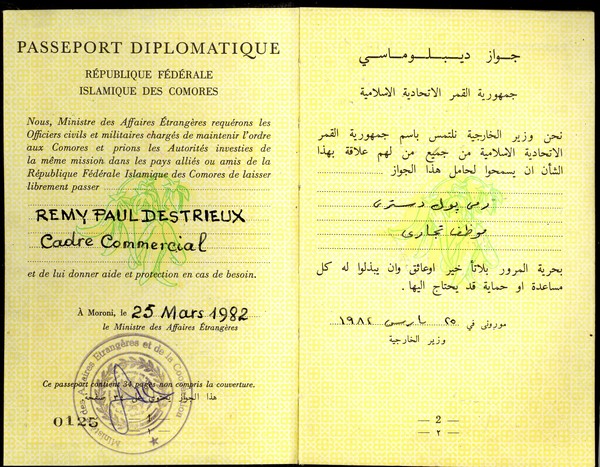 PASSEPORT DIPLOMATIQUE
RÉPUBLIQUE FÉDÉRALE
ISLAMIQUE DES COMORES
Nous, Ministre des Affaires Étrangères requérons les
Officiers civils et militaires chargés de maintenir l'ordre
aux Comores et prions les Autorités investies de
la même mission dans les pays alliés ou amis de la
République Fédérale Islamique des Comores de laisser
librement passer
REMY PAUL DESTRIEUX
Cadre Commercial
et de lui donner aide et protection en cas de besoin.
À Moroni, le 25 Mars 1982
le Ministre des Affaires Étrangères
Ministère des Affaires Etrangères et de la Coopération
Ce passeport contient 34 pages non compris la couverture.
هذا الجواز يحتوى على ٣٤ صفحة
0125
1
١
جواز ديبلوماسي
جمهورية القمر الاتحادية الاسلامية
نحن وزير الخارجية نلتمس باسم جمهورية القمر
الاتحادية الاسلامية من جميع من لهم علاقة بهذا
الشأن ان يسمحوا لحامل هذا الجواز
رمى پول دسترى
موظف تجارى
بحرية المرور بلاتأ خير اوعائق وان يبذلوا له كل
مساعدة او حماية قد يحتاج اليها.
مورونى في ٢٥ مارس ١٩٨٢
وزير الخارجية
— 2 —
— ٢ —